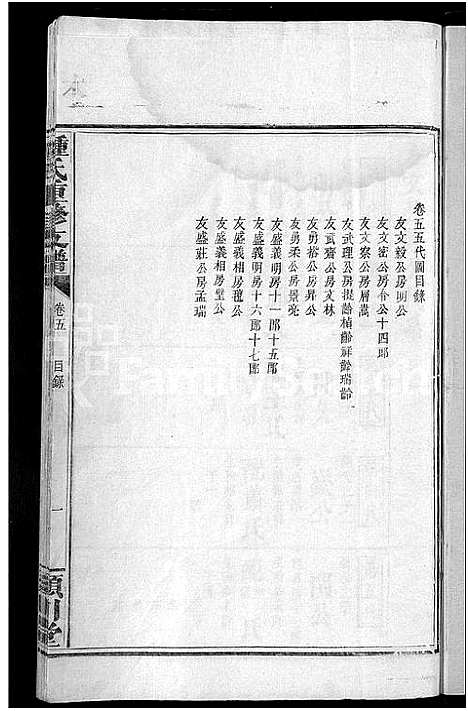 卷五五代圖目錄
友文毅公房明公
友文密公房希公十四郎
友文察公房層嵩
友武理公房提齡楨齡祥齡瑞齡
友武齋公房文林
友勇裕公房昇公
友勇柔公房景亮
友盛義明房十一郎十五郎
友盛義明房十六郎十七郎
友盛義相房禮公
友盛義相房璧公
友盛莊公房孟瑞
鍾氏重修支譜
卷五
目錄
一
潁川堂